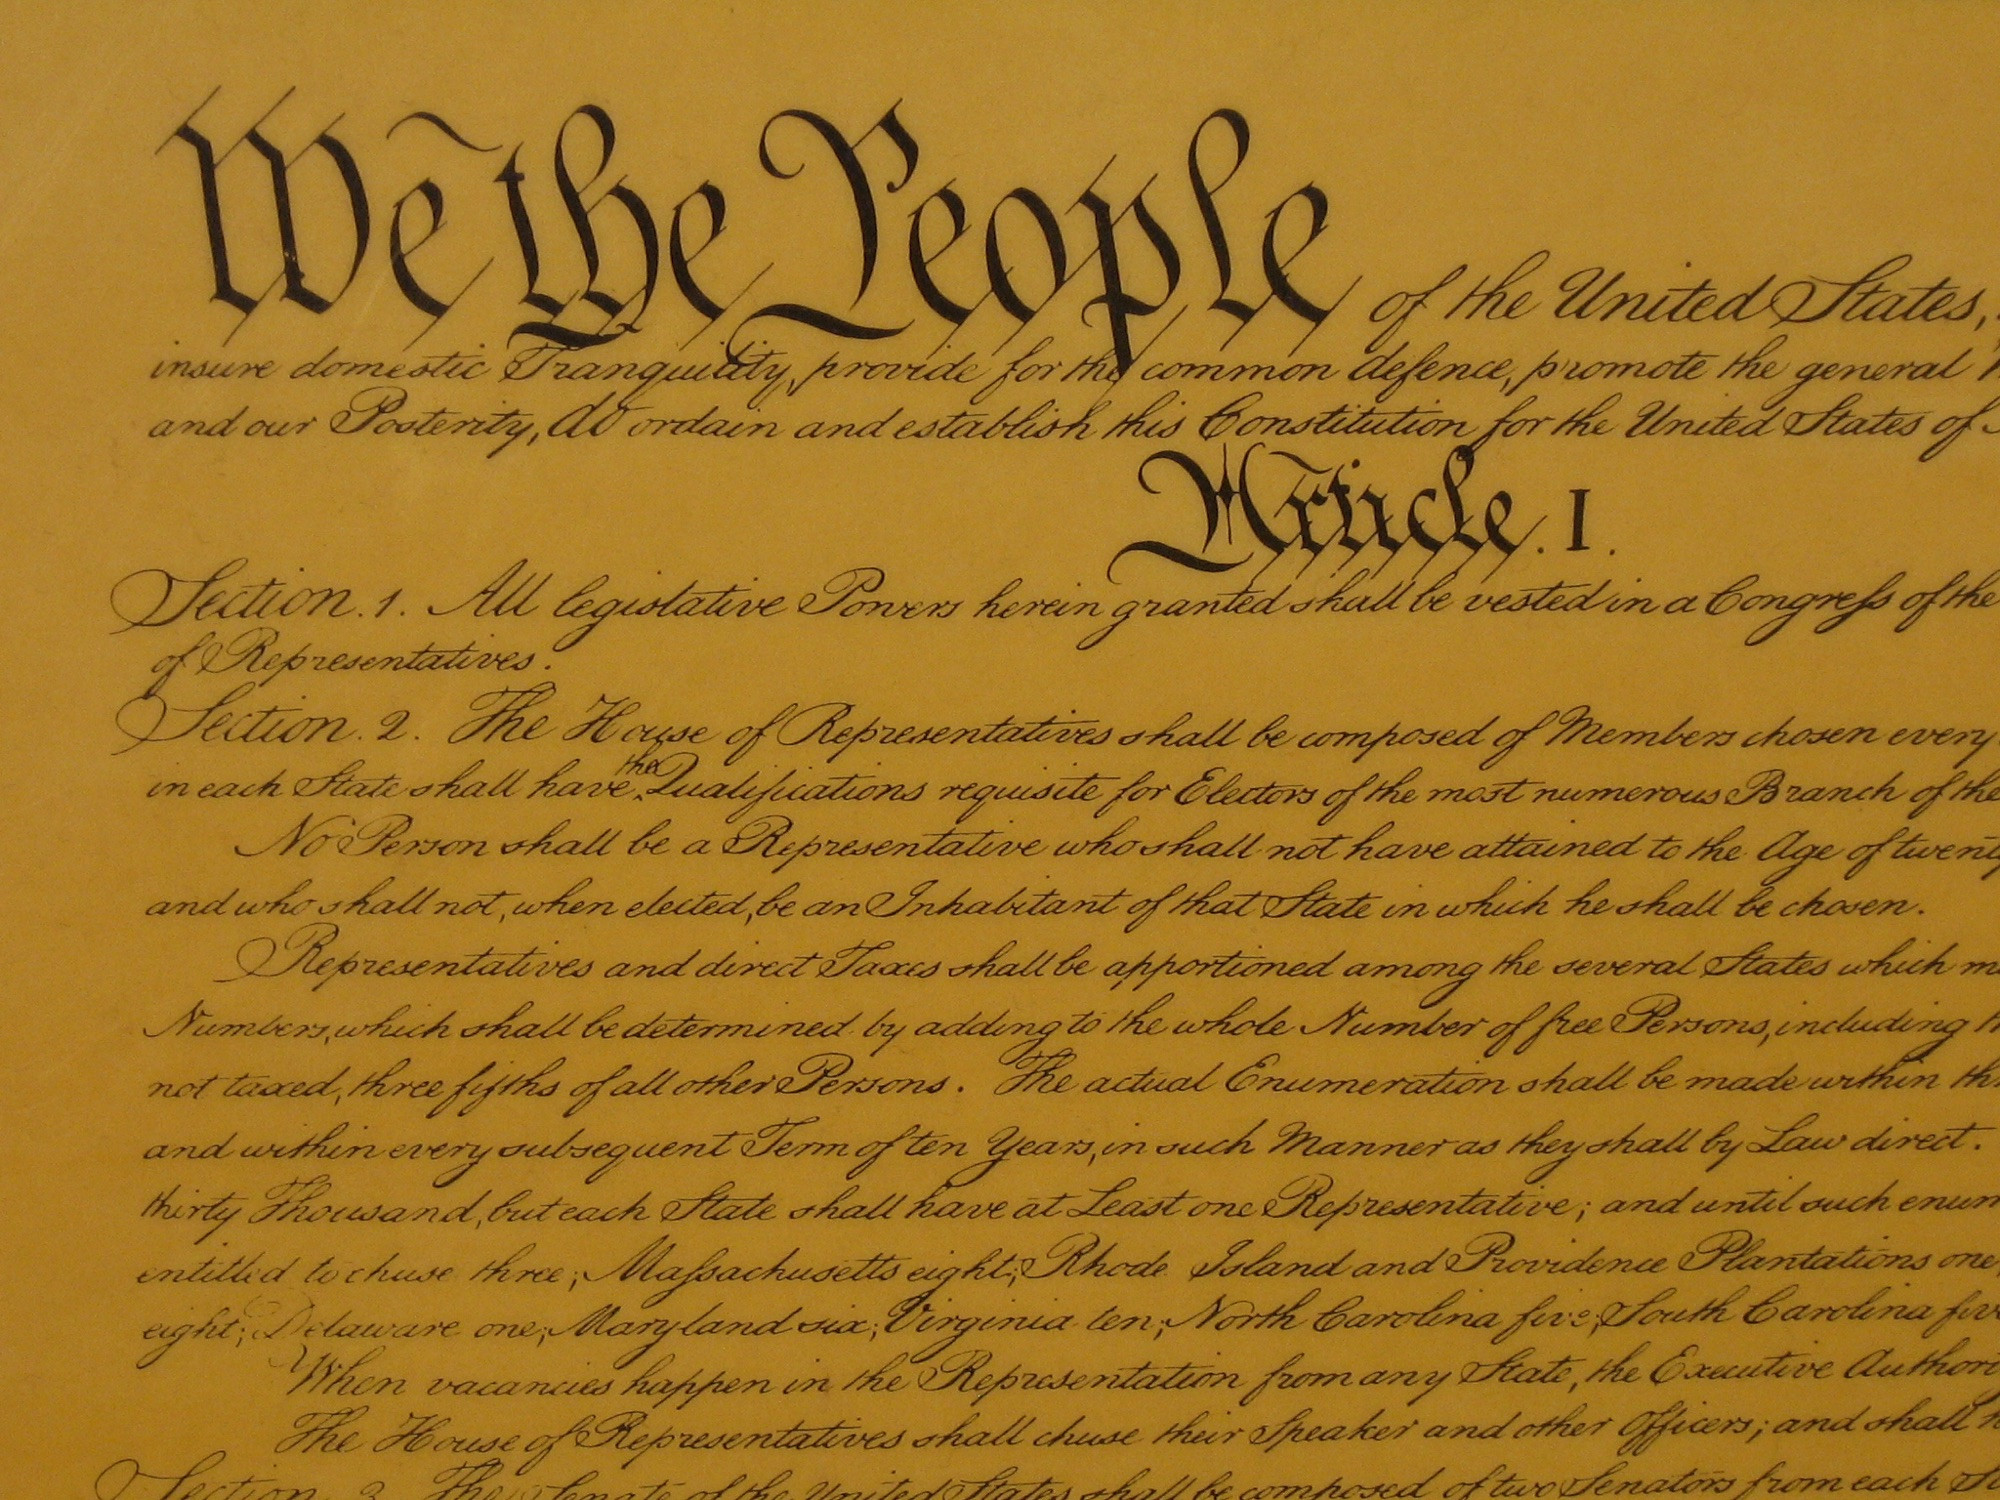 We the People of the United States,
insure domestic Tranquility, provide for the common defence, promote the general
and our Posterity, do ordain and establish this Constitution for the United States of
Article. I.
Section. 1. All legislative Powers herein granted shall be vested in a Congreſs of the
of Representatives.
Section. 2. The House of Representatives shall be composed of Members chosen every
the
in each State shall have Qualifications requisite for Electors of the most numerous Branch of the
No Person shall be a Representative who shall not have attained to the Age of twenty
and who shall not, when elected, be an Inhabitant of that State in which he shall be chosen.
Representatives and direct Taxes shall be apportioned among the several States which m
Numbers, which shall be determined by adding to the whole Number of free Persons, including th
not taxed, three fifths of all other Persons. The actual Enumeration shall be made within th
and within every subsequent Term of ten Years, in such Manner as they shall by Law direct.
thirty Thousand, but each State shall have at Least one Representative; and until such enum
entitled to chuse three, Maſsachusetts eight, Rhode Island and Providence Plantations one,
eight, Delaware one, Maryland six, Virginia ten, North Carolina five, South Carolina five
When vacancies happen in the Representation from any State, the Executive Authori
The House of Representatives shall chuse their Speaker and other Officers; and shall h
Section. 3. The Senate of the United States shall be composed of two Senators from each St